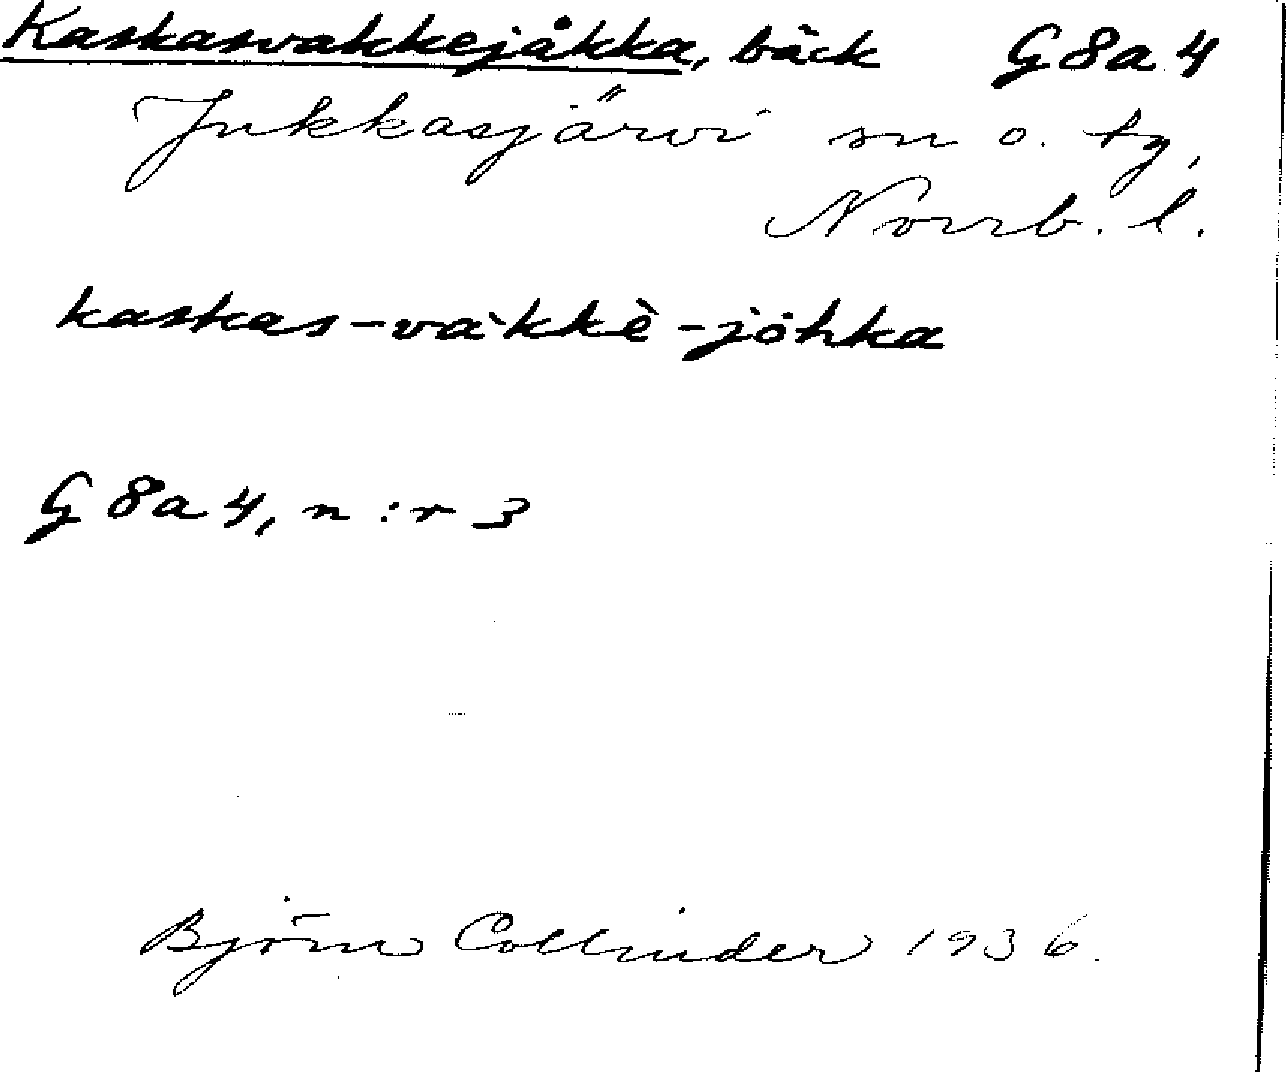 Kaskasvakkejåkka, bäck G8a4
Jukkasjärvi sn o. tg,
Norrb. l.
kaskas-vàkkè-jòhka
G8a4, n:r 3
Björn Collinder 1936.